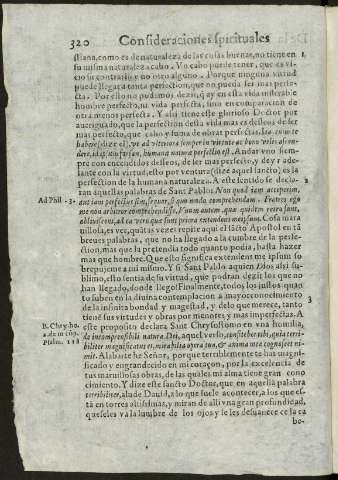 320 Consideraciones spirituales
stiana, como es de naturaleza de las cosas buenas, no tiene en
su misma naturaleza cabo. Vn cabo puede tener, que es vi-
cio su contrario, y no otro alguno. Porque ninguna virtud
puede llegar a tanta perfection, que no pueda ser mas perfe-
cta. Por esto no podemos dezir, q̃ ay en esta vida miserable
hombre perfecto, ni vida perfecta, sino en comparacion de
otra menos perfecta. Y assi tiene este glorioso Doctor por
aueriguado, que la perfection desta vida mas es desseos de ser
mas perfecto, que cabo y suma de obras perfectas.
babere (dize el), ve ad vlteriora semper in virtute ac bono velis ascen-
dere, id ipsum forsan, humana natura perfectio est. Andar vno siem-
pre con encendidos desseos, de ser mas perfecto, y de yr ade-
lante con la virtud, esto por ventura (dize aquel sancto) es la
perfection de la humana naturaleza. A este sentido se decla-
Ad Phil. 3.
ran aquellas palabras de Sant Pablo. Non quod iam acceperim,
aut iam perfectus sim, sequor, si quo modo comprehendam. Fratres ego
me non arbitror comprehendisse, Vnum autem, quæ quidem retro sunt,
obliuiscens, ad ea vero que sunt priora extendens meipsum. Cosa mara
uillosa, es ver, quãtas vezes repite aquel sãcto Apostol en tã
breues palabras, que no ha llegado a la cumbre de la perfe-
ction, mas que la pretendia todo quanto podia, hasta hazer
mas que hombre. Que esto significa extendens me ipsum so
brepujeme a mi mismo. Y si Sant Pablo a quien Dios alsi su-
blimo, esto sentia de su virtud, que podran dezir los que no
han llegado, donde el llego? Finalmente, todos los justos quan
to suben en la diuina contemplacion a mayor conocimiento
3
de la infinita bondad y magestad, y de lo que merece, tanto
tiene sus virtudes y obras por menores, y mas imperfectas. A
este proposito declara Sant Chrysostomo en vna homilia,
de incomprensibili natura Dei, aquel verso, confitebor tibi, quia terri-
biliter magnificatus es, mirabilia opera tua, & anima mea cognoscet ni-
mis. Alabarte he Señor, porque terriblemente te has magni-
ficado y engrandecido en mi coraçon, por la excelencia de
tus marauillosas obras, de las quales mi alma tiene gran cono
cimiento. Y dize este sancto Doctor, que en aquella palabra
terribiliter, alude Dauid, a lo que suele acontecer, a los que es-
tã en torres altissimas, y miran de alli vna gran profundidad,
que se les va la lumbre de los ojos y se les desuanece la ca
be-